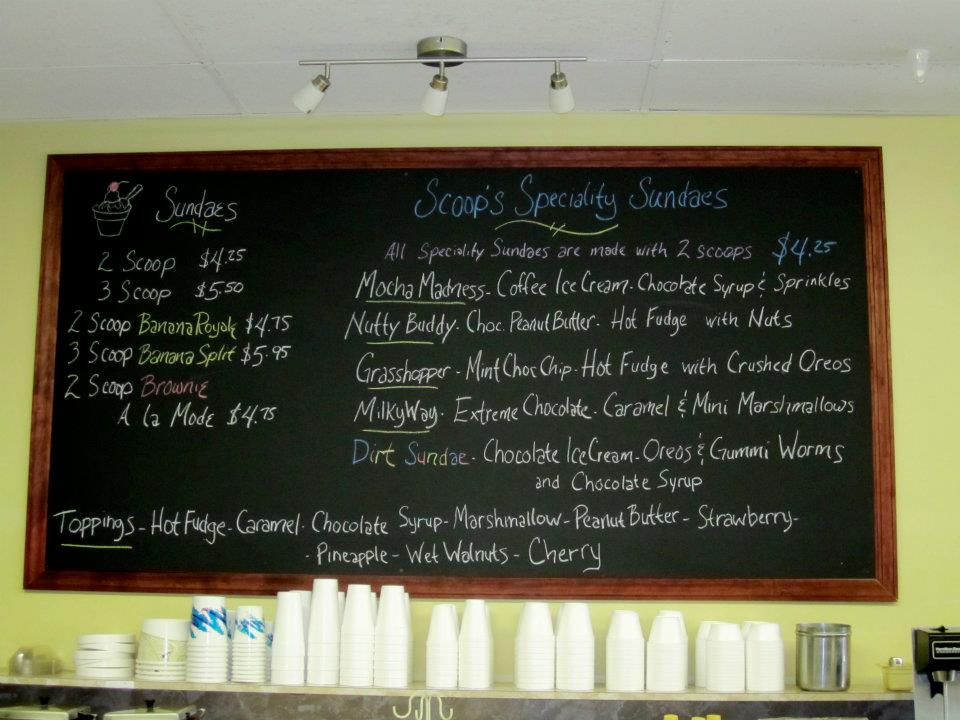 Sundaes
2 Scoop $4.25
3 Scoop $5.50
2 Scoop Banana Royale $4.75
3 Scoop Banana Split $5.95
2 Scoop Brownie
A la Mode $4.75
Scoop's Speciality Sundaes
All Speciality Sundaes are made with 2 scoops $4.25
Mocha Madness- Coffee Ice Cream. Chocolate Syrup & Sprinkles
Nutty Buddy. Choc. Peanut Butter. Hot Fudge with Nuts
Grasshopper - Mint Choc Chip - Hot Fudge with Crushed Oreos
Milky Way. Extreme Chocolate. Caramel & Mini Marshmallows
Dirt Sundae. Chocolate Ice Cream. Oreos & Gummi Worms
and Chocolate Syrup
Toppings - Hot Fudge - Caramel. Chocolate Syrup - Marshmallow - Peanut Butter - Strawberry-
- Pineapple - Wet Walnuts - Cherry